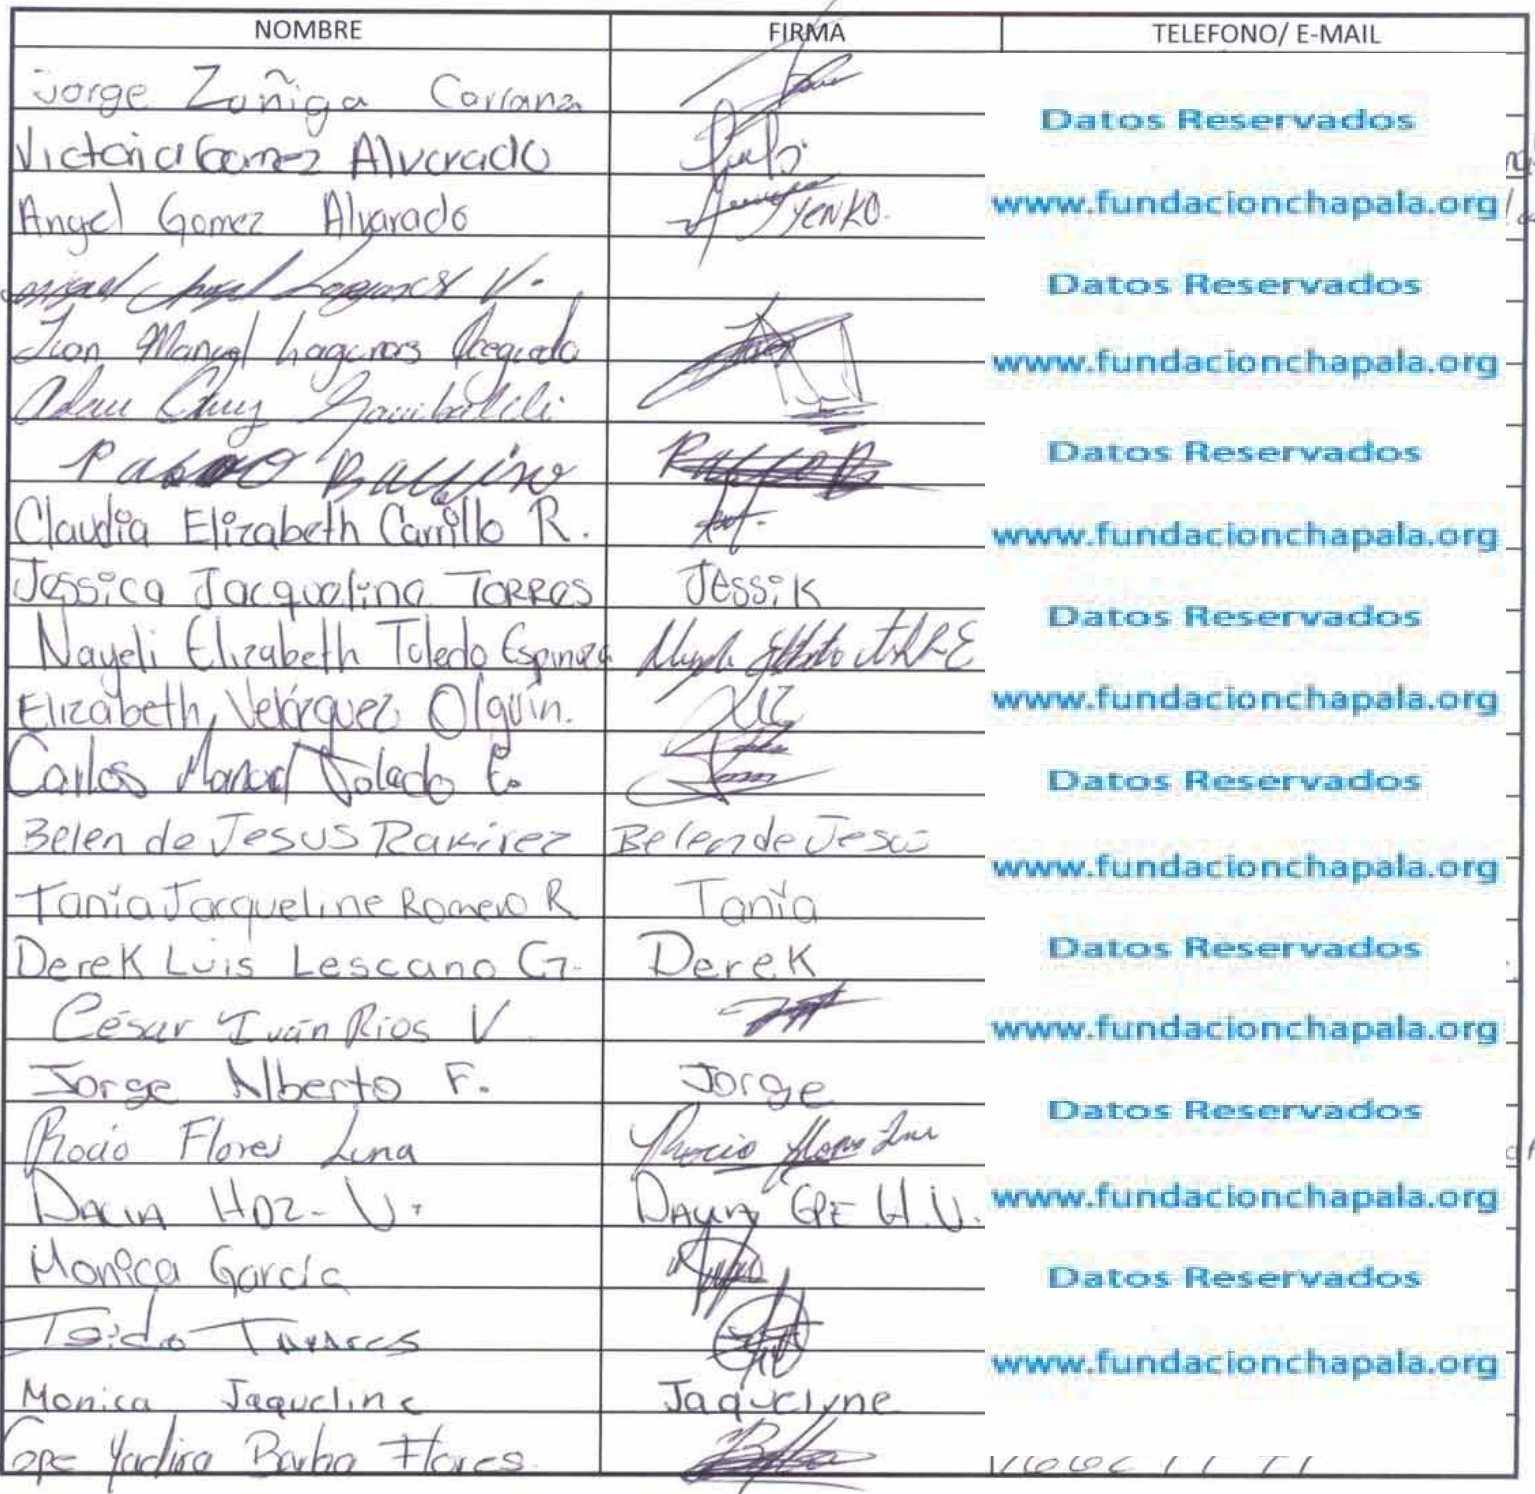 NOMBRE FIRMA TELEFONO/ E-MAIL
Jorge Zuñiga Carranza
Datos Reservados
Victoria Gomez Alvarado
Angel Gomez Alvarado YENKO. www.fundacionchapala.org
Miguel Angel V. Datos Reservados
Juan Manuel Lagunas www.fundacionchapala.org
Cruz
Datos Reservados
Claudia Elizabeth Carrillo R. www.fundacionchapala.org
Jessica Jacquelina TORRES Jessik
Datos Reservados
Nayeli Elizabeth Toledo Espinoza
Elizabeth Velázquez Olguín. www.fundacionchapala.org
Carlos Manuel Toledo E. Datos Reservados
Belen de Jesus Ramirez Belen de Jesus
www.fundacionchapala.org
Tania Jacqueline Romero R Tania
Derek Luis Lescano G. Derek Datos Reservados
César Iván Rios V www.fundacionchapala.org
Jorge Alberto F. Jorge
Datos Reservados
Rocio Flores Luna Rocio Flores Luna
DALIA HDZ- V. GPE H.V. www.fundacionchapala.org
Monica Garcia Datos Reservados
Tavares www.fundacionchapala.org
Monica Jaqueline Jaquelyne
Gpe Yadira Barba Flores.